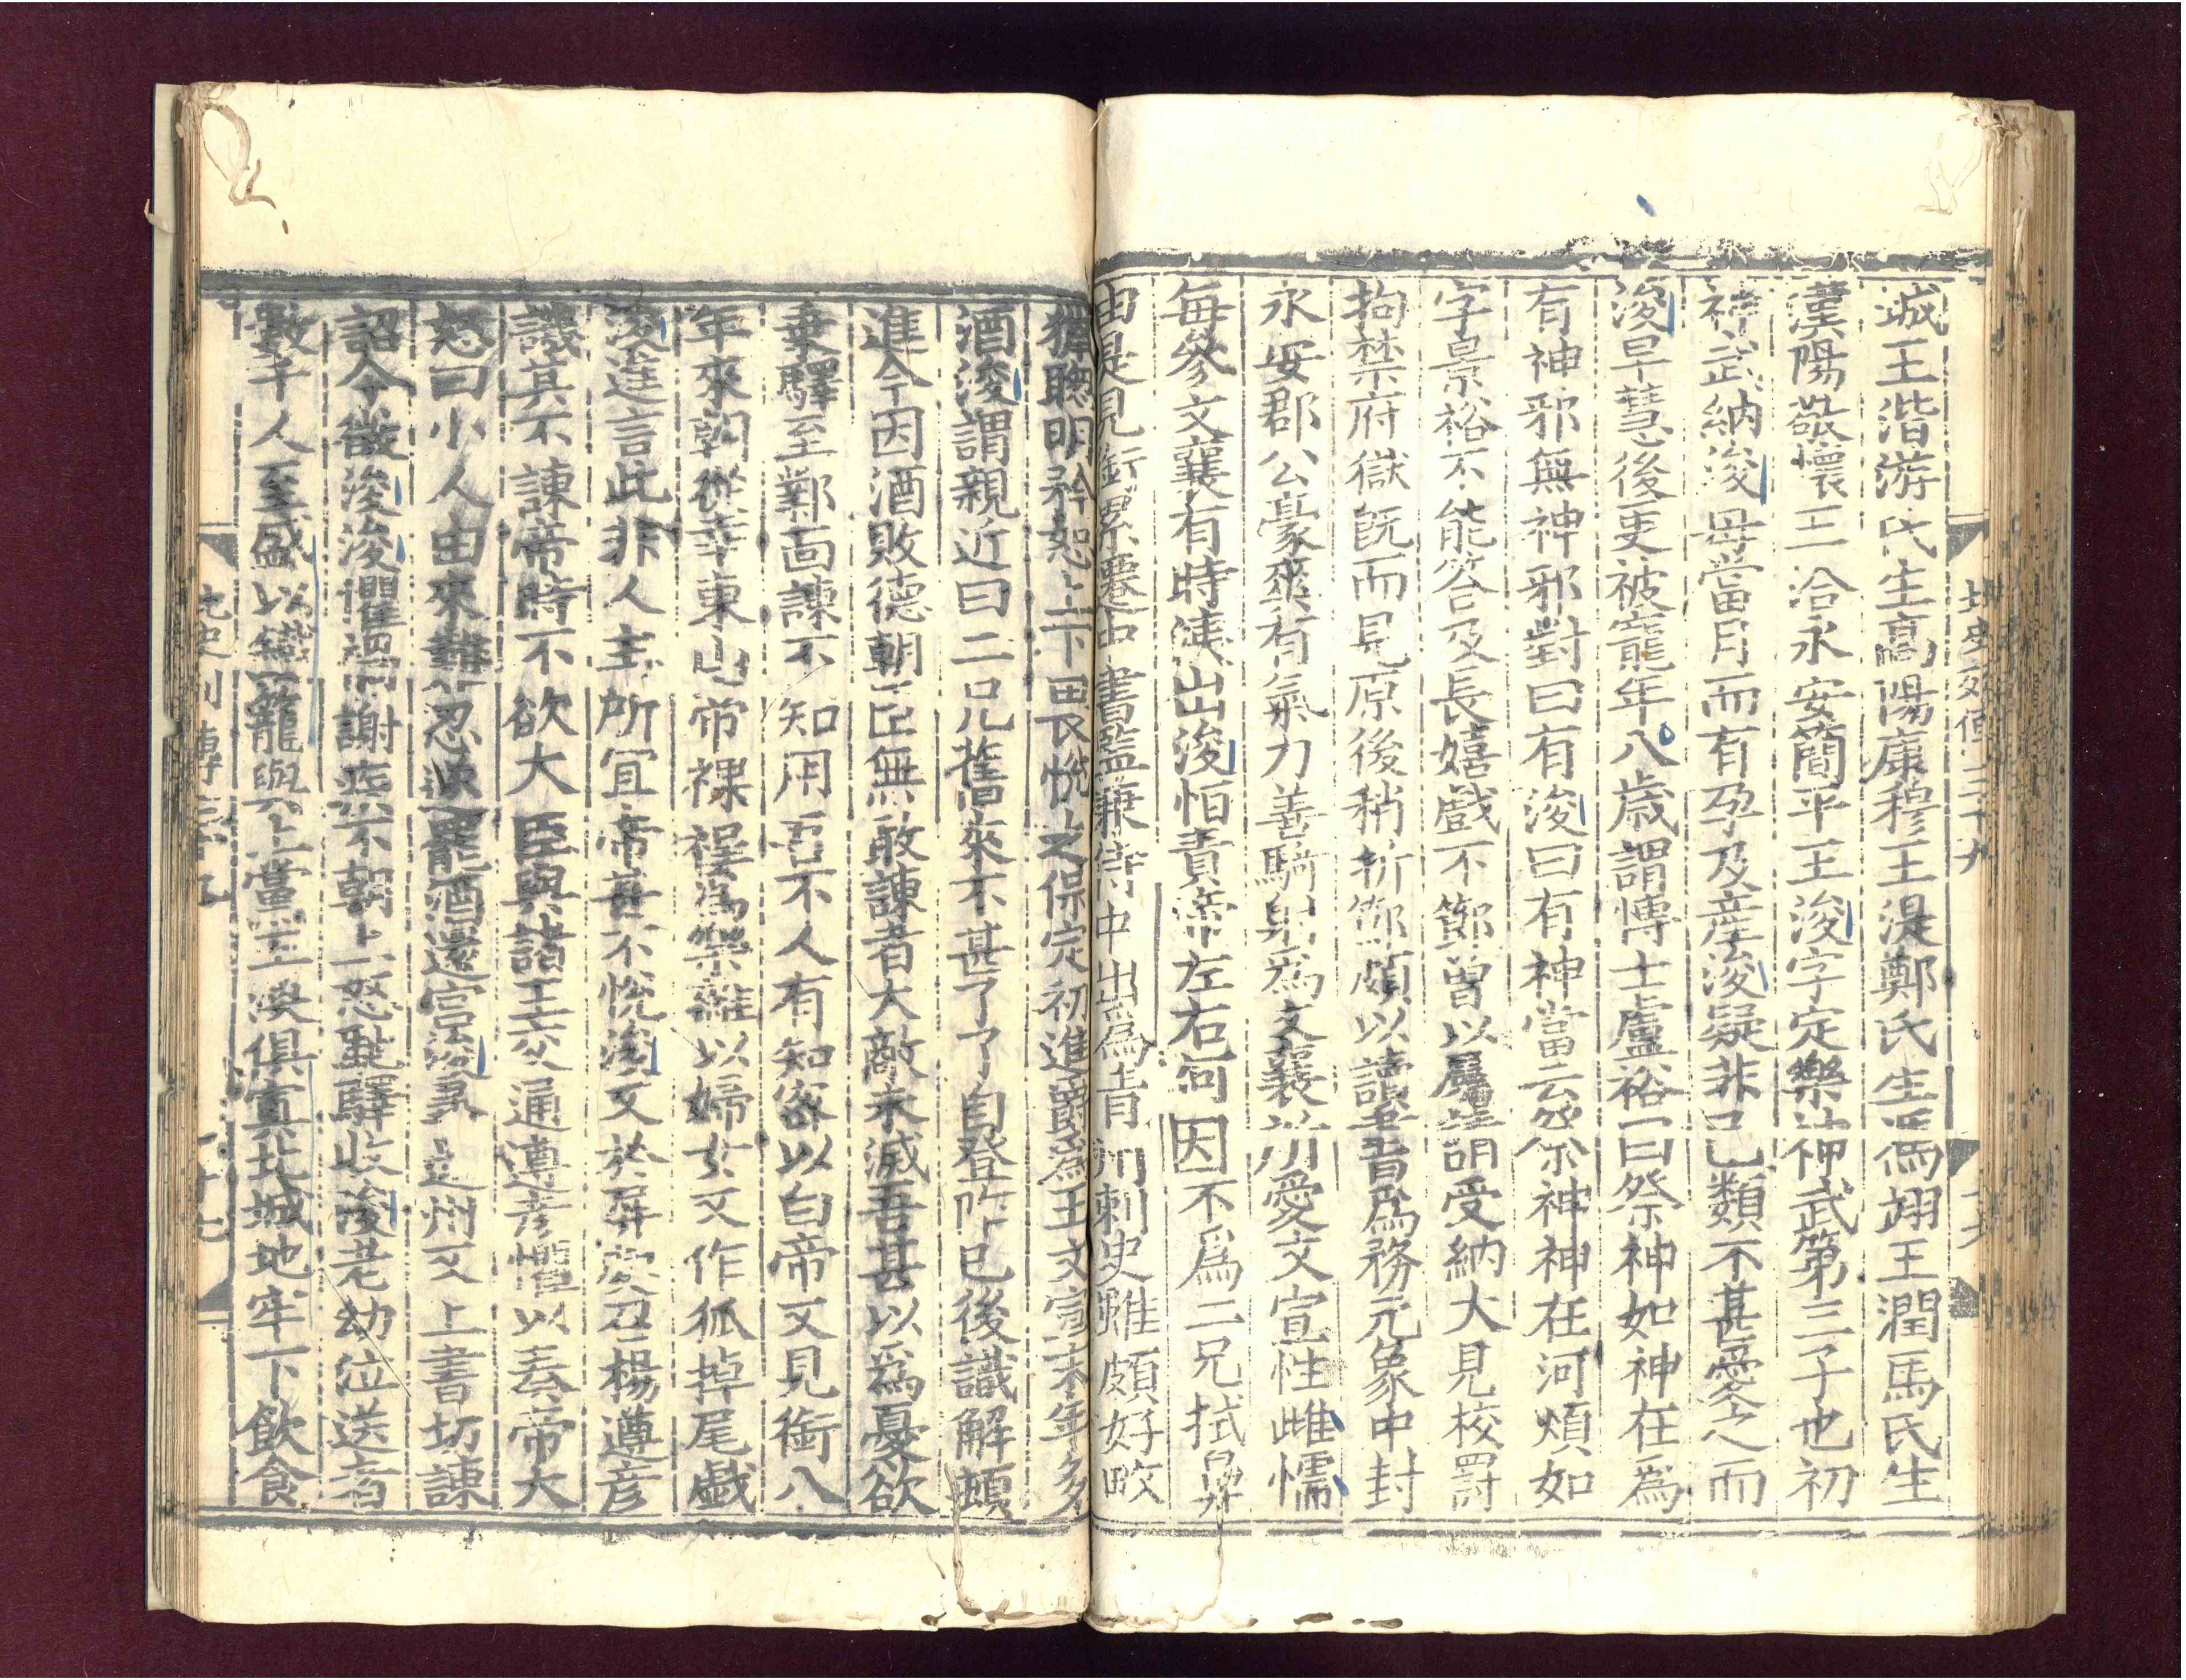 城王湝游氏生高陽康穆王湜鄭氏生馮翊王潤馬氏生
漢陽敬懷王洽永安簡平王浚字定樂神武第三子也初
神武納浚母當月而有孕及産浚疑非己類不甚愛之而
浚早慧後更被寵年八歳謂博士盧裕曰祭神如神在爲
有神邪無神邪對曰有浚曰有神當云祭神神在何煩如
字景裕不能答及長嬉戲不節曽以屬請謂受納大見校罰
拘禁府獄既而見原後稍折節頗以讀書爲務元象中封
永安郡公豪爽有氣力善騎射爲文襄所愛文宣性雌懦
每參文襄有時洟出浚恒責帝左右何因不爲二兄拭鼻
由是見銜累遷中書監兼侍中出爲青州刺史雖頗好畋
獵聰明矜恕上下畏悅之保定初進爵爲王文宣末年多
酒浚謂親近曰二兄舊來不甚了了自登阼已後識解頓
進今因酒敗德朝臣無敢諫者大敵未滅吾甚以爲憂欲
乗驛至鄴面諫不知用吾不人有知密以白帝又見銜八
年來朝從幸東山帝裸裎爲樂雜以婦女又作狐掉尾戯
浚進言此非人主所宜帝甚不悅浚又於屏處召楊遵彦
譏其不諫帝時不欲大臣與諸王交通遵彦懼以奏帝大
怒曰小人由來難忍遂罷酒還宮浚尋還州又上書切諫
詔令徵浚浚懼禍謝疾不朝上怒馳驛收浚老幼泣送者
數千人至盛以鐵籠與上黨王渙俱寘北城地牢下飲食